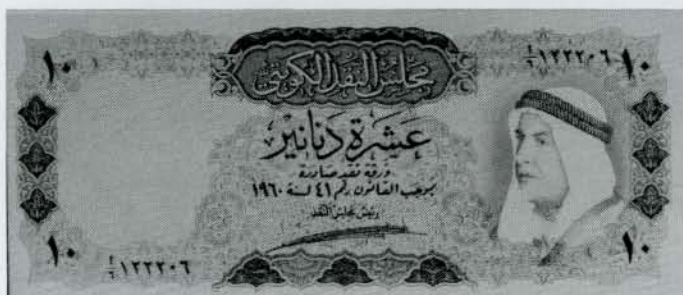 ١٠ ١٢٢٢٠٦ ١٠
مجلس النقد الكويتي
عشرة دنانير
ورقة نقد صادرة
بموجب القانون رقم ٤١ لسنة ١٩٦٠
رئيس مجلس النقد
١٠ ١٢٢٢٠٦ ١٠